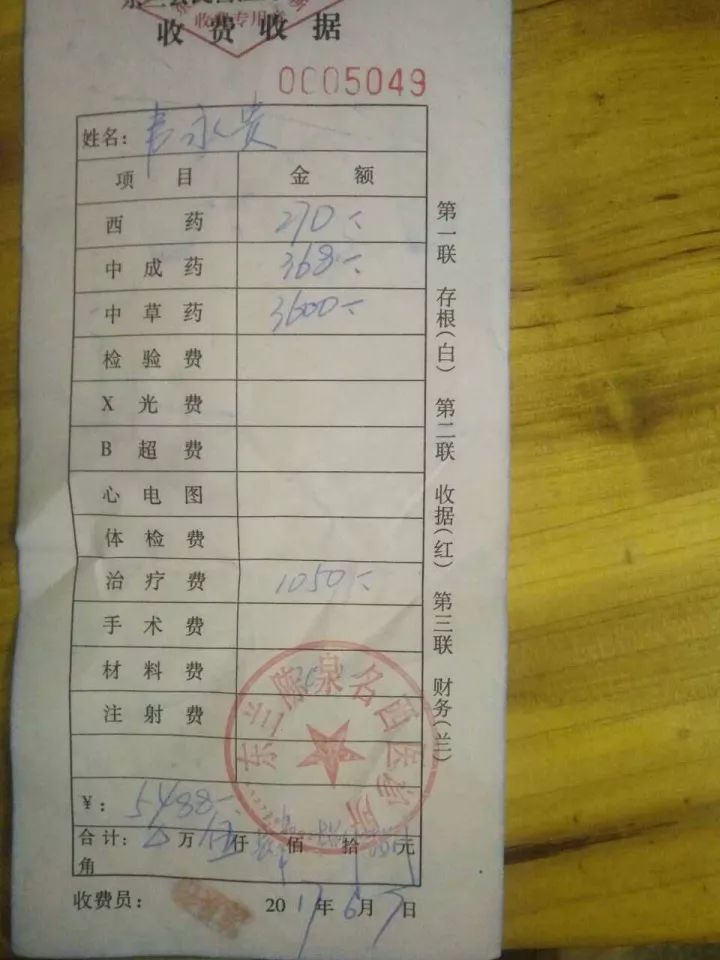 收费专用
收费收据
0005049
姓名：韦永贵
项目 金额
西药 270
中成药 368
中草药 3600
检验费
X光费
B超费
心电图
体检费
治疗费 1050
手术费
材料费
注射费
¥：5488
合计： 万伍仟 佰 拾 元
角
收费员： 2017年6月 日
第一联 存根（白） 第二联 收据（红） 第三联 财务（兰）
东兰陈泉名西医诊所